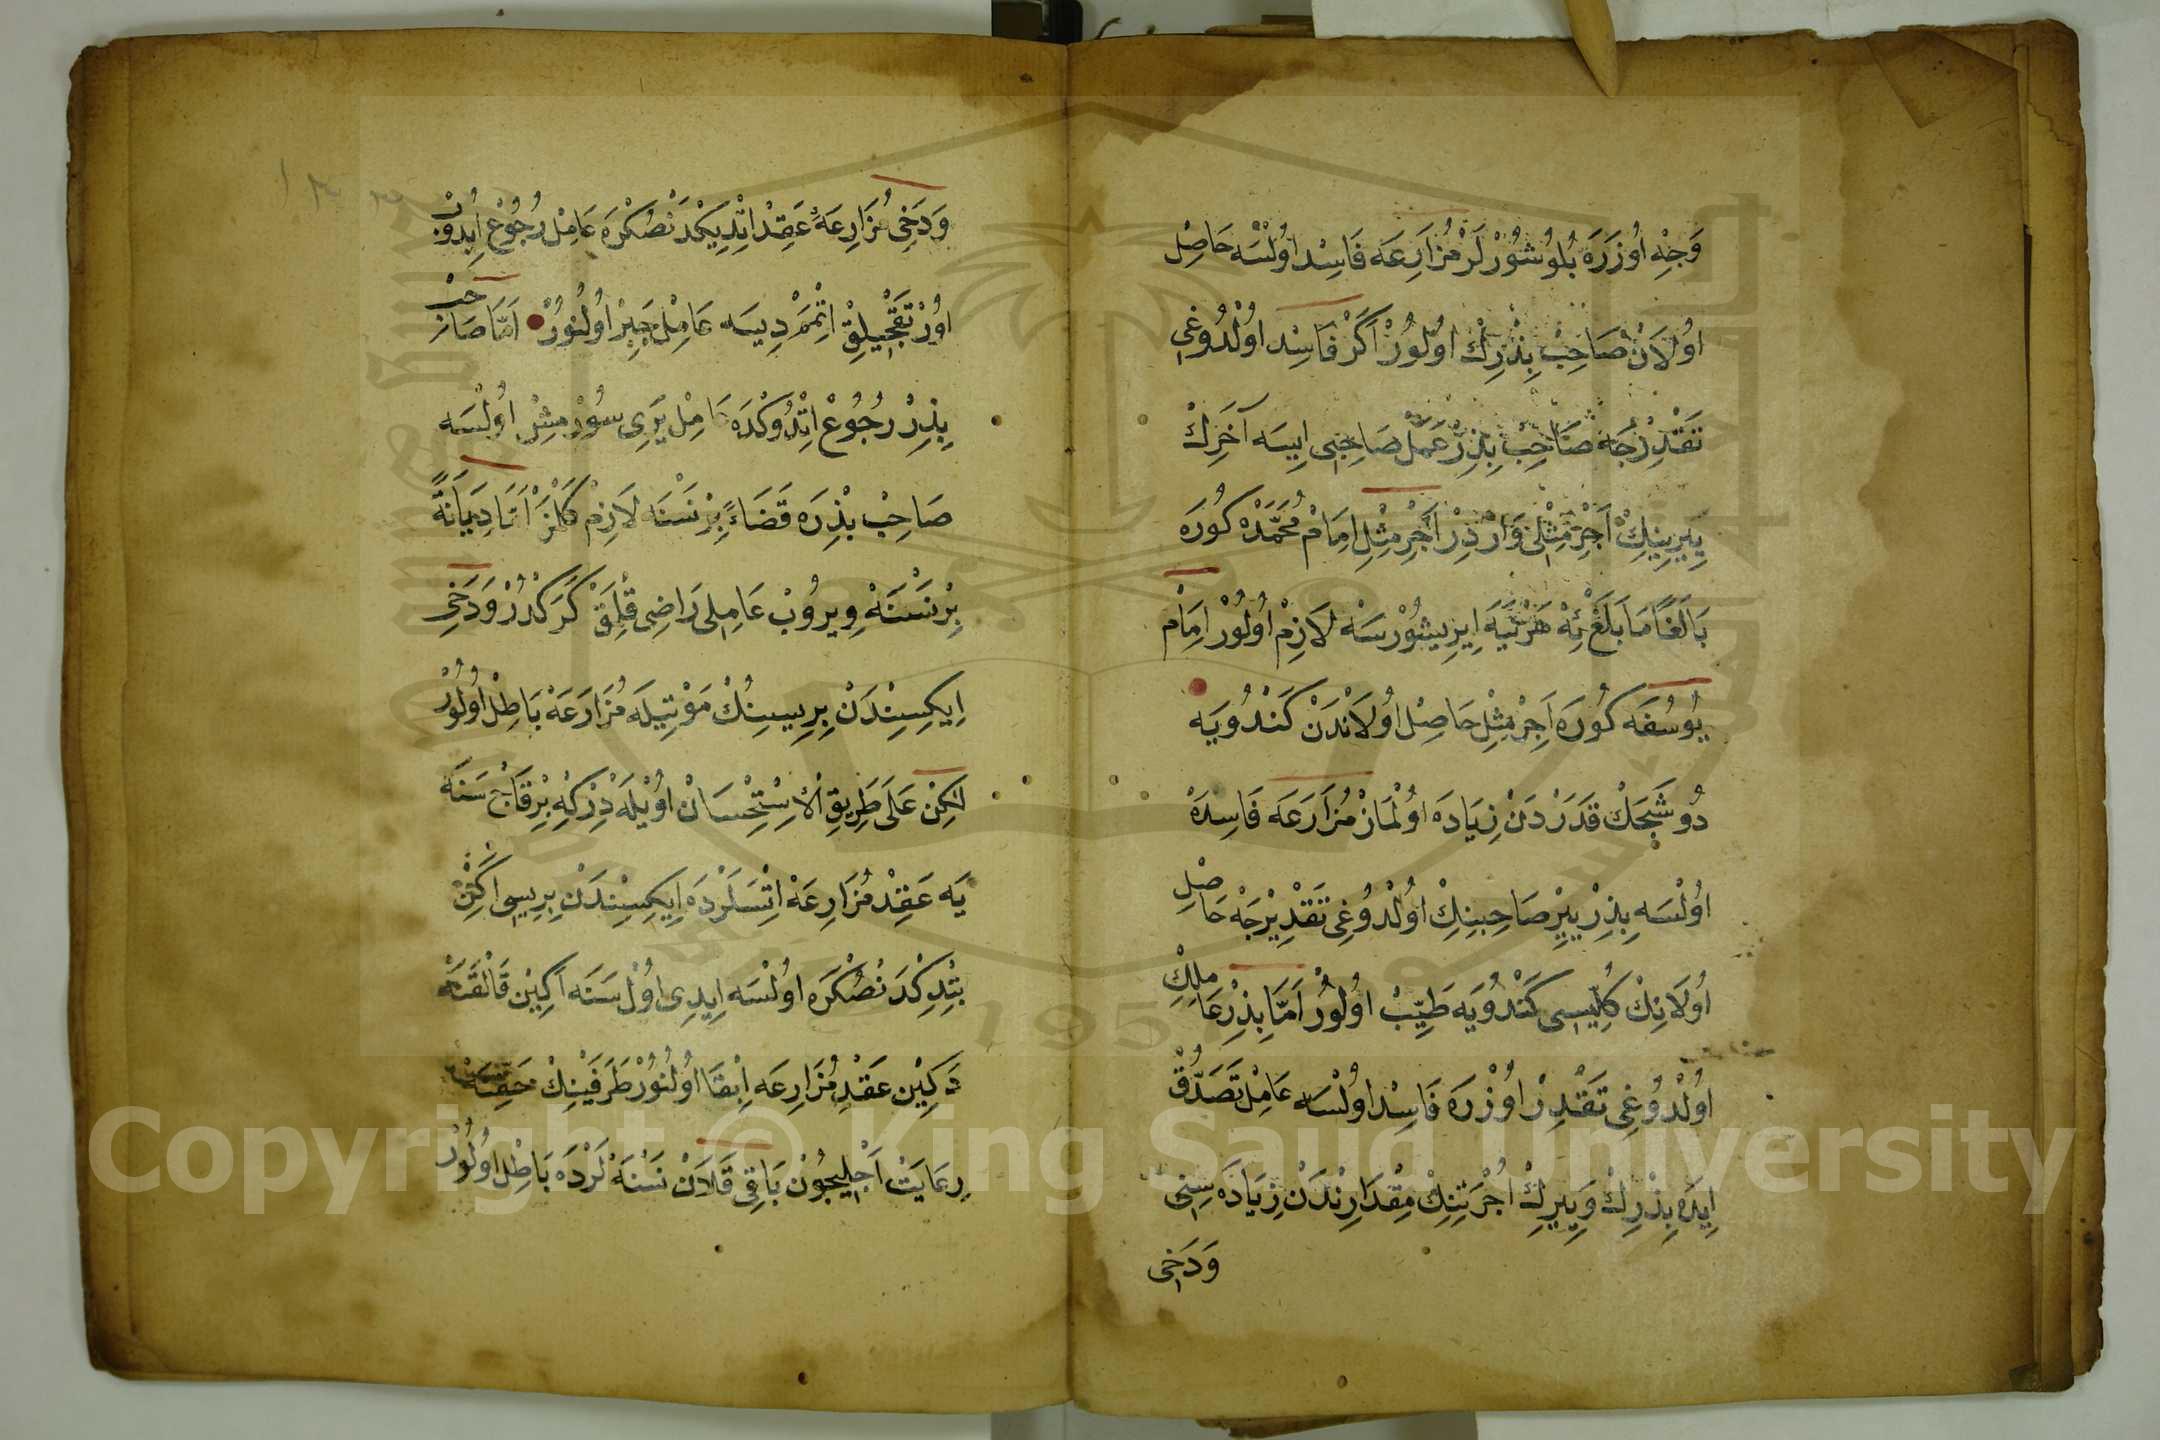 وَجْهِ اُوزَرَه بُلُوشُورْلَرْ مُزَارِعَه فَاسِدْ اُولْسَه حَاصِلْ
اُولَانْ صَاحِبْ بِذْرِكْ اُولُورْ اَكَرْ فَاسِدْ اُولْدُوغِى
تَقْدِرْجَه صَاحِبْ بِذِرْ عَمَلْ صَاحِبِى اِيسَه آخَرِكْ
يِيرِينِكْ اَجْرِ مِثْلِى وَارْدِرْ اَجْرِ مِثْلِ اِمَامْ مُحَمَّدَه كُورَه
بَالَغًا مَا بَلَغْ نِه هَرْنَيَه اِيرِيشُورْسَه لَازِمْ اُولُورْ اِمَامْ
يُوسُفَه كُورَه اَجِرْ مِثْلِ حَاصِلْ اُولَانْدَنْ كَنْدُويَه
دُوشَجَكْ قَدَرْدَنْ زِيَادَه اُولْمَازْ مُزَارَعَه فَاسِدَه
اُولْسَه بِذِرْ يِيرِ صَاحِبِنِكْ اُولْدُوغِى تَقْدِيرْجَه حَاصِلْ
اُولَانِكْ كُلِّيسِى كَنْدُويَه طَيِّبْ اُولُورْ اَمَّا بِذْرِ عَامِلِكْ
اُولْدُوغِى تَقْدِرْ اُوزْرَه فَاسِدْ اُولْسَه عَامِلْ تَصَدُّقْ
اِيدَه بِذْرِكْ وَيِيرِكْ اُجْرَتِنِكْ مِقْدَارِنْدَنْ زِيَادَه سِنِى
وَدَخِى
وَدَخِى مُزَارِعَه عَقِدْ اِتْدِيكْدَنْصُكْرَه عَامِلْ رُجُوعْ اِيدُوبْ
اِتْمَمْ دِيسَه عَامِلْ جَبِرْ اُولُنُورْ اَمَّا صَاحِبْ
بِذِرْ رُجُوعْ اِتْدُوكْدَه عَامِلْ يَرِى سُورْمِشْ اُولْسَه
صَاحِبْ بِذِرَه قَضَاءً بِرْنَسْنَه لَازِمْ كَلْمَزْ اَمَّا دِيَانَةً
بِرْنَسْنَه وِيرُوبْ عَامِلِى رَاضِى قِلْمَقْ كَرَكْدُرْ وَدَخِى
اِيكِسِنْدَنْ بِرِيسِنُكْ مَوْتِيلَه مُزَارَعَه بَاطِلْ اُولُورْ
لٰكِنْ عَلَى طَرِيقِ الْاِسْتِحْسَانْ اُويْلَه دِرْكِه بِرْقَاجْ سَنَه
يَه عَقِدْ مُزَارِعَه اِتْسَلَرْدَه اِيكِسِنْدَنْ بِرِيسِى اَكِنْ
بِتْدِكْدَنْصُكْرَه اُولْسَه اِيدِى اُولْ سَنَه اَكِينْ قَالْقَنَه
دَكِيْنْ عَقْدِ مُزَارِعَه اِبْقَا اُولُنُورْ طَرَفَيْنِكْ حَقِنَه
رِعَايَتْ اَجْلِيچُونْ بَاقِى قَلَانْ سَنَه لَرْدَه بَاطِلْ اُولُورْ